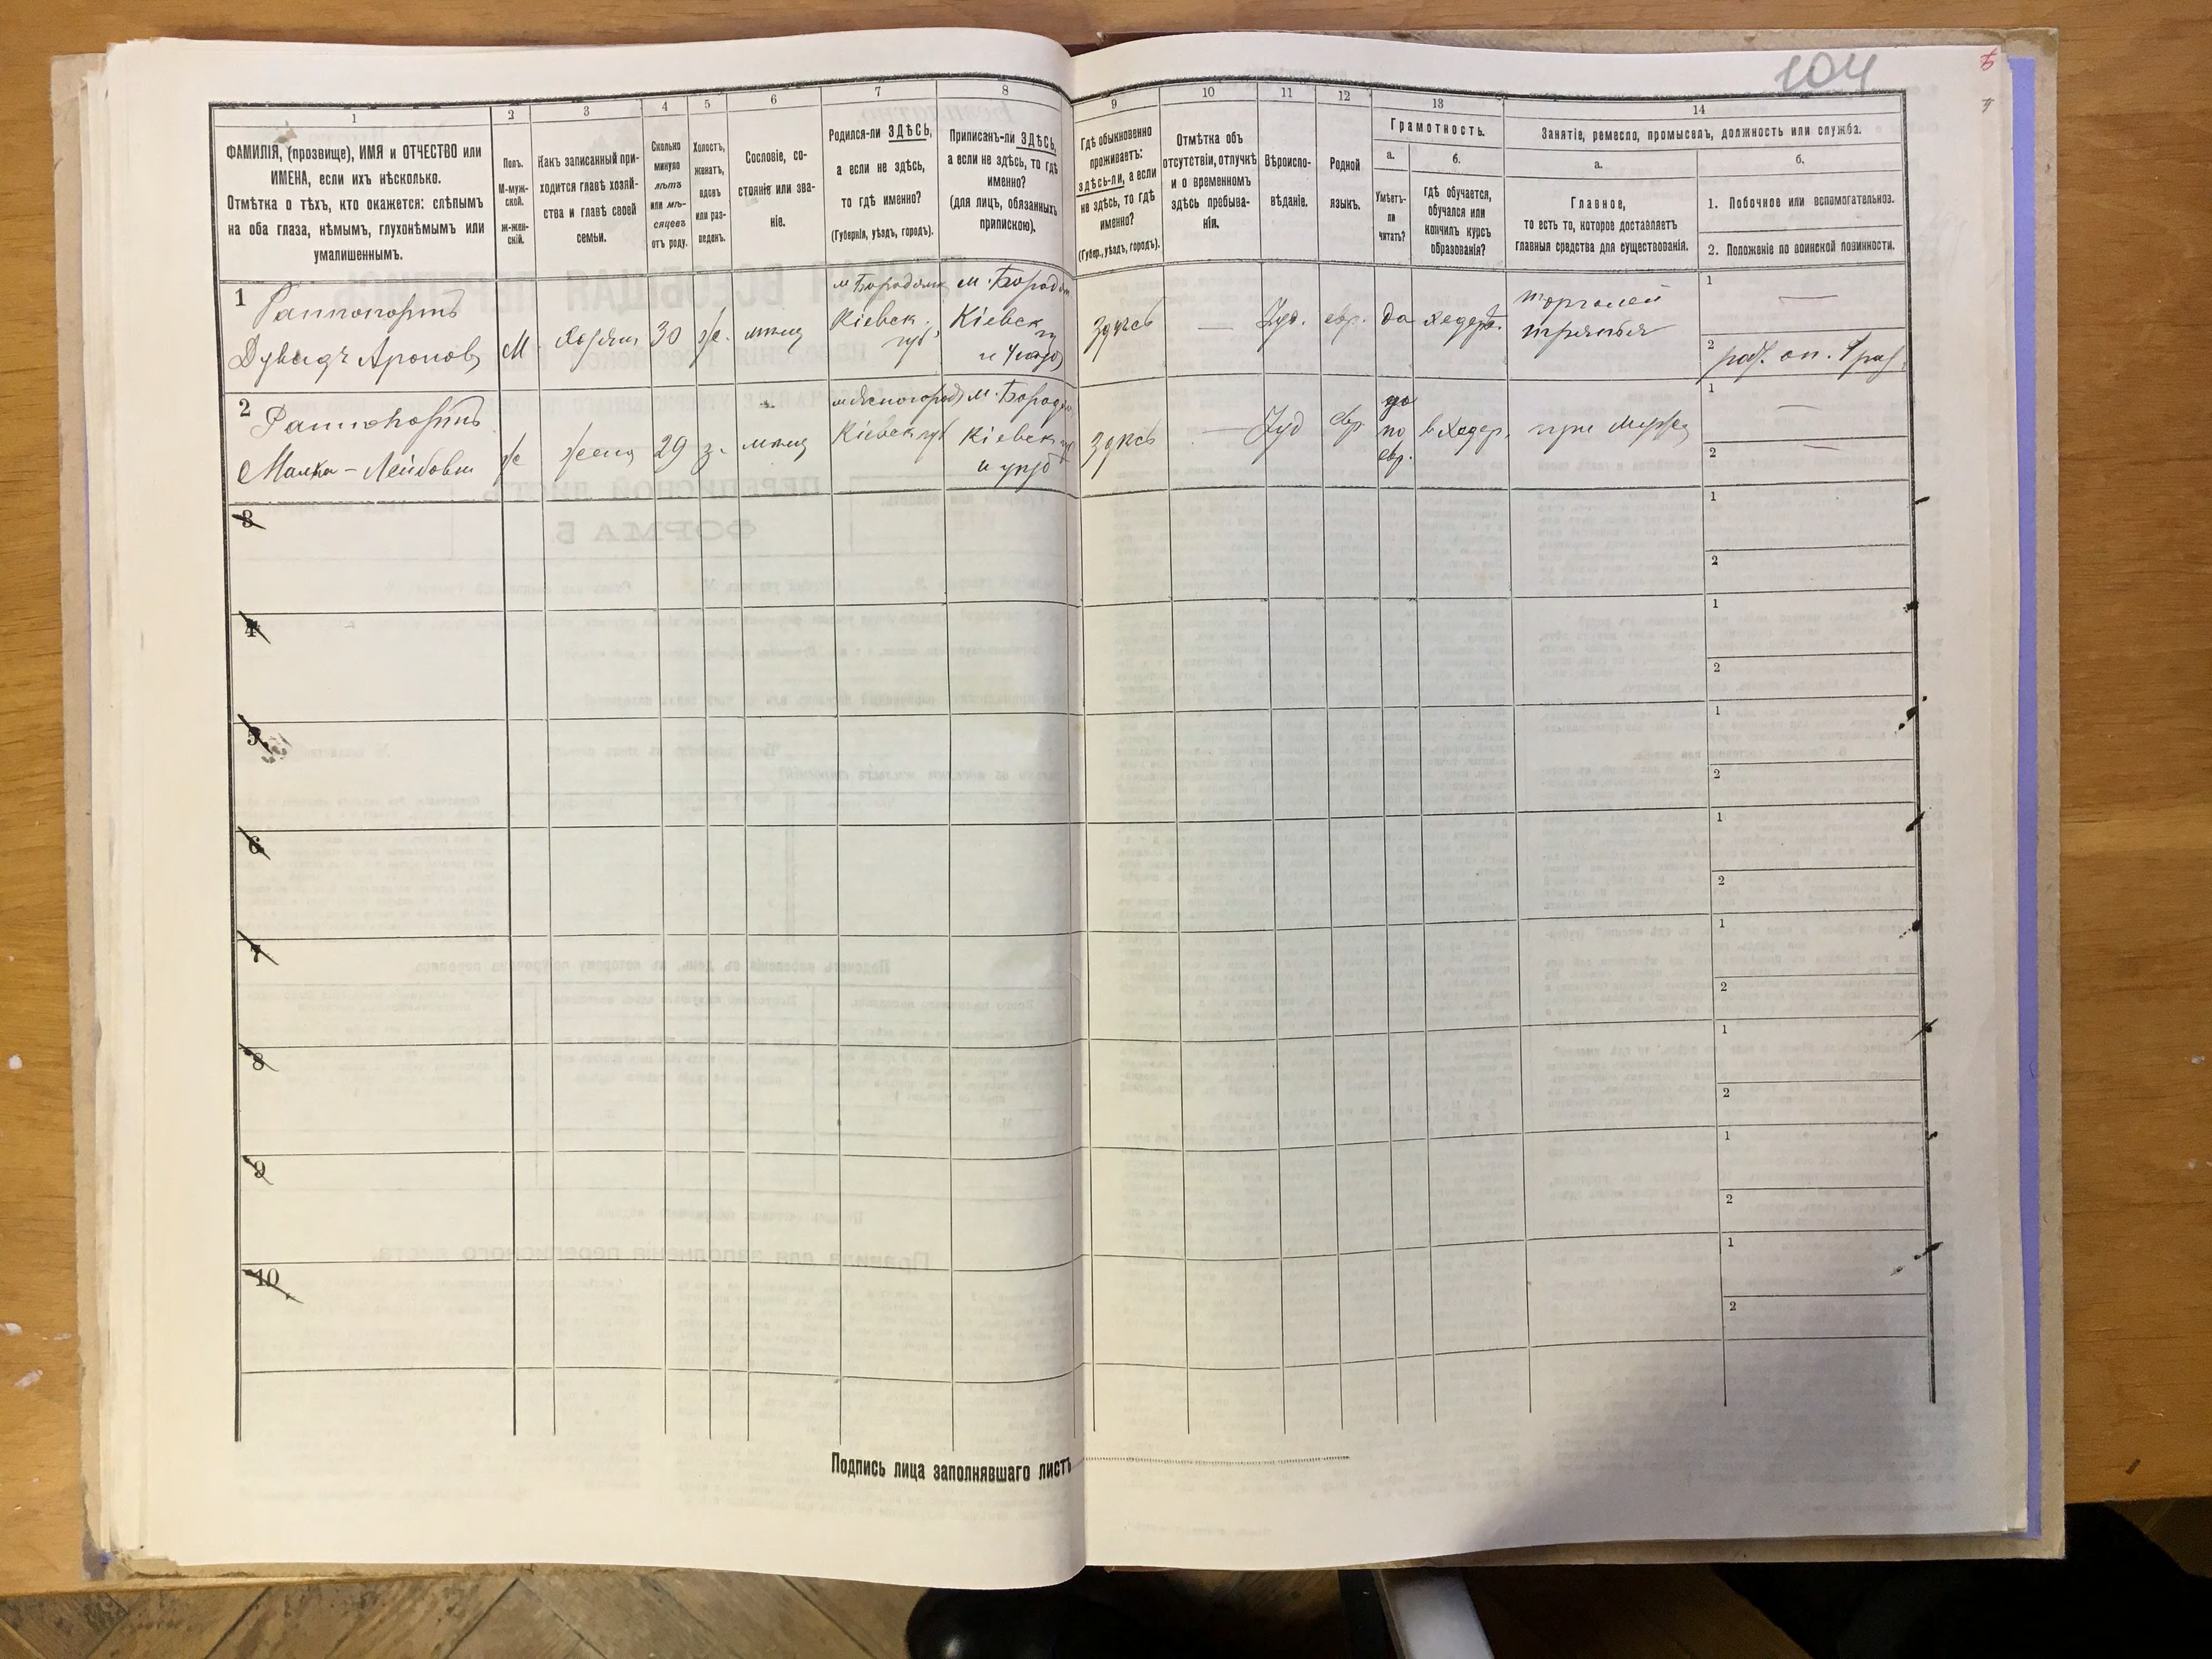 104
1
2
3
4
5
6
7
8
9
10
11
12
13
14
ФАМИЛІЯ, (прозвище), ИМЯ и ОТЧЕСТВО или
ИМЕНА, если ихъ нѣсколько.
Отмѣтка о тѣхъ, кто окажется: слѣпымъ
на оба глаза, нѣмымъ, глухонѣмымъ или
умалишеннымъ.
Полъ.
М-муж-
ской.
Ж-жен-
скій.
Какъ записанный при-
ходится главѣ хозяй-
ства и главѣ своей
семьи.
Сколько
минуло
лѣтъ
или мѣ-
сяцевъ
отъ роду.
Холостъ,
женатъ,
вдовъ
или раз-
веденъ.
Сословіе, со-
стояніе или зва-
ніе.
Родился-ли ЗДѢСЬ,
а если не здѣсь,
то гдѣ именно?
(Губернія, уѣздъ, городъ).
Приписанъ-ли ЗДѢСЬ,
а если не здѣсь, то гдѣ
именно?
(для лицъ, обязанныхъ
припискою).
Гдѣ обыкновенно
проживаетъ:
здѣсь-ли, а если
не здѣсь, то гдѣ
именно?
(Губер., уѣздъ, городъ).
Отмѣтка объ
отсутствіи, отлучкѣ
и о временномъ
здѣсь пребыва-
ніи.
Вѣроиспо-
вѣданіе.
Родной
языкъ.
Грамотность.
а.
Умѣетъ-
ли
читать?
б.
гдѣ обучается,
обучался или
кончилъ курсъ
образованія?
Занятіе, ремесло, промыселъ, должность или служба.
а.
Главное,
то есть то, которое доставляетъ
главныя средства для существованія.
б.
1. Побочное или вспомогательное.
2. Положеніе по воинской повинности.
1
Раппопортъ
Дувидъ Ароновъ
М
Хозяин
30
ж.
мѣщ
Кіевск.
губ
Кіевск
Здѣсь
—
Іуд.
евр.
да
хедеръ
торговлей
1
—
2
2
Раппопортъ
Малка - Лейбови
ж
жена
29
з.
мѣщ
Кіевск губ
Кіевск
Здѣсь
—
Іуд
евр
да
по
евр.
в хедер.
при мужѣ
1
—
2
—
3
1
2
4
1
2
5
1
2
6
1
2
7
1
2
8
1
2
9
1
2
10
1
2
Подпись лица заполнявшаго листъ